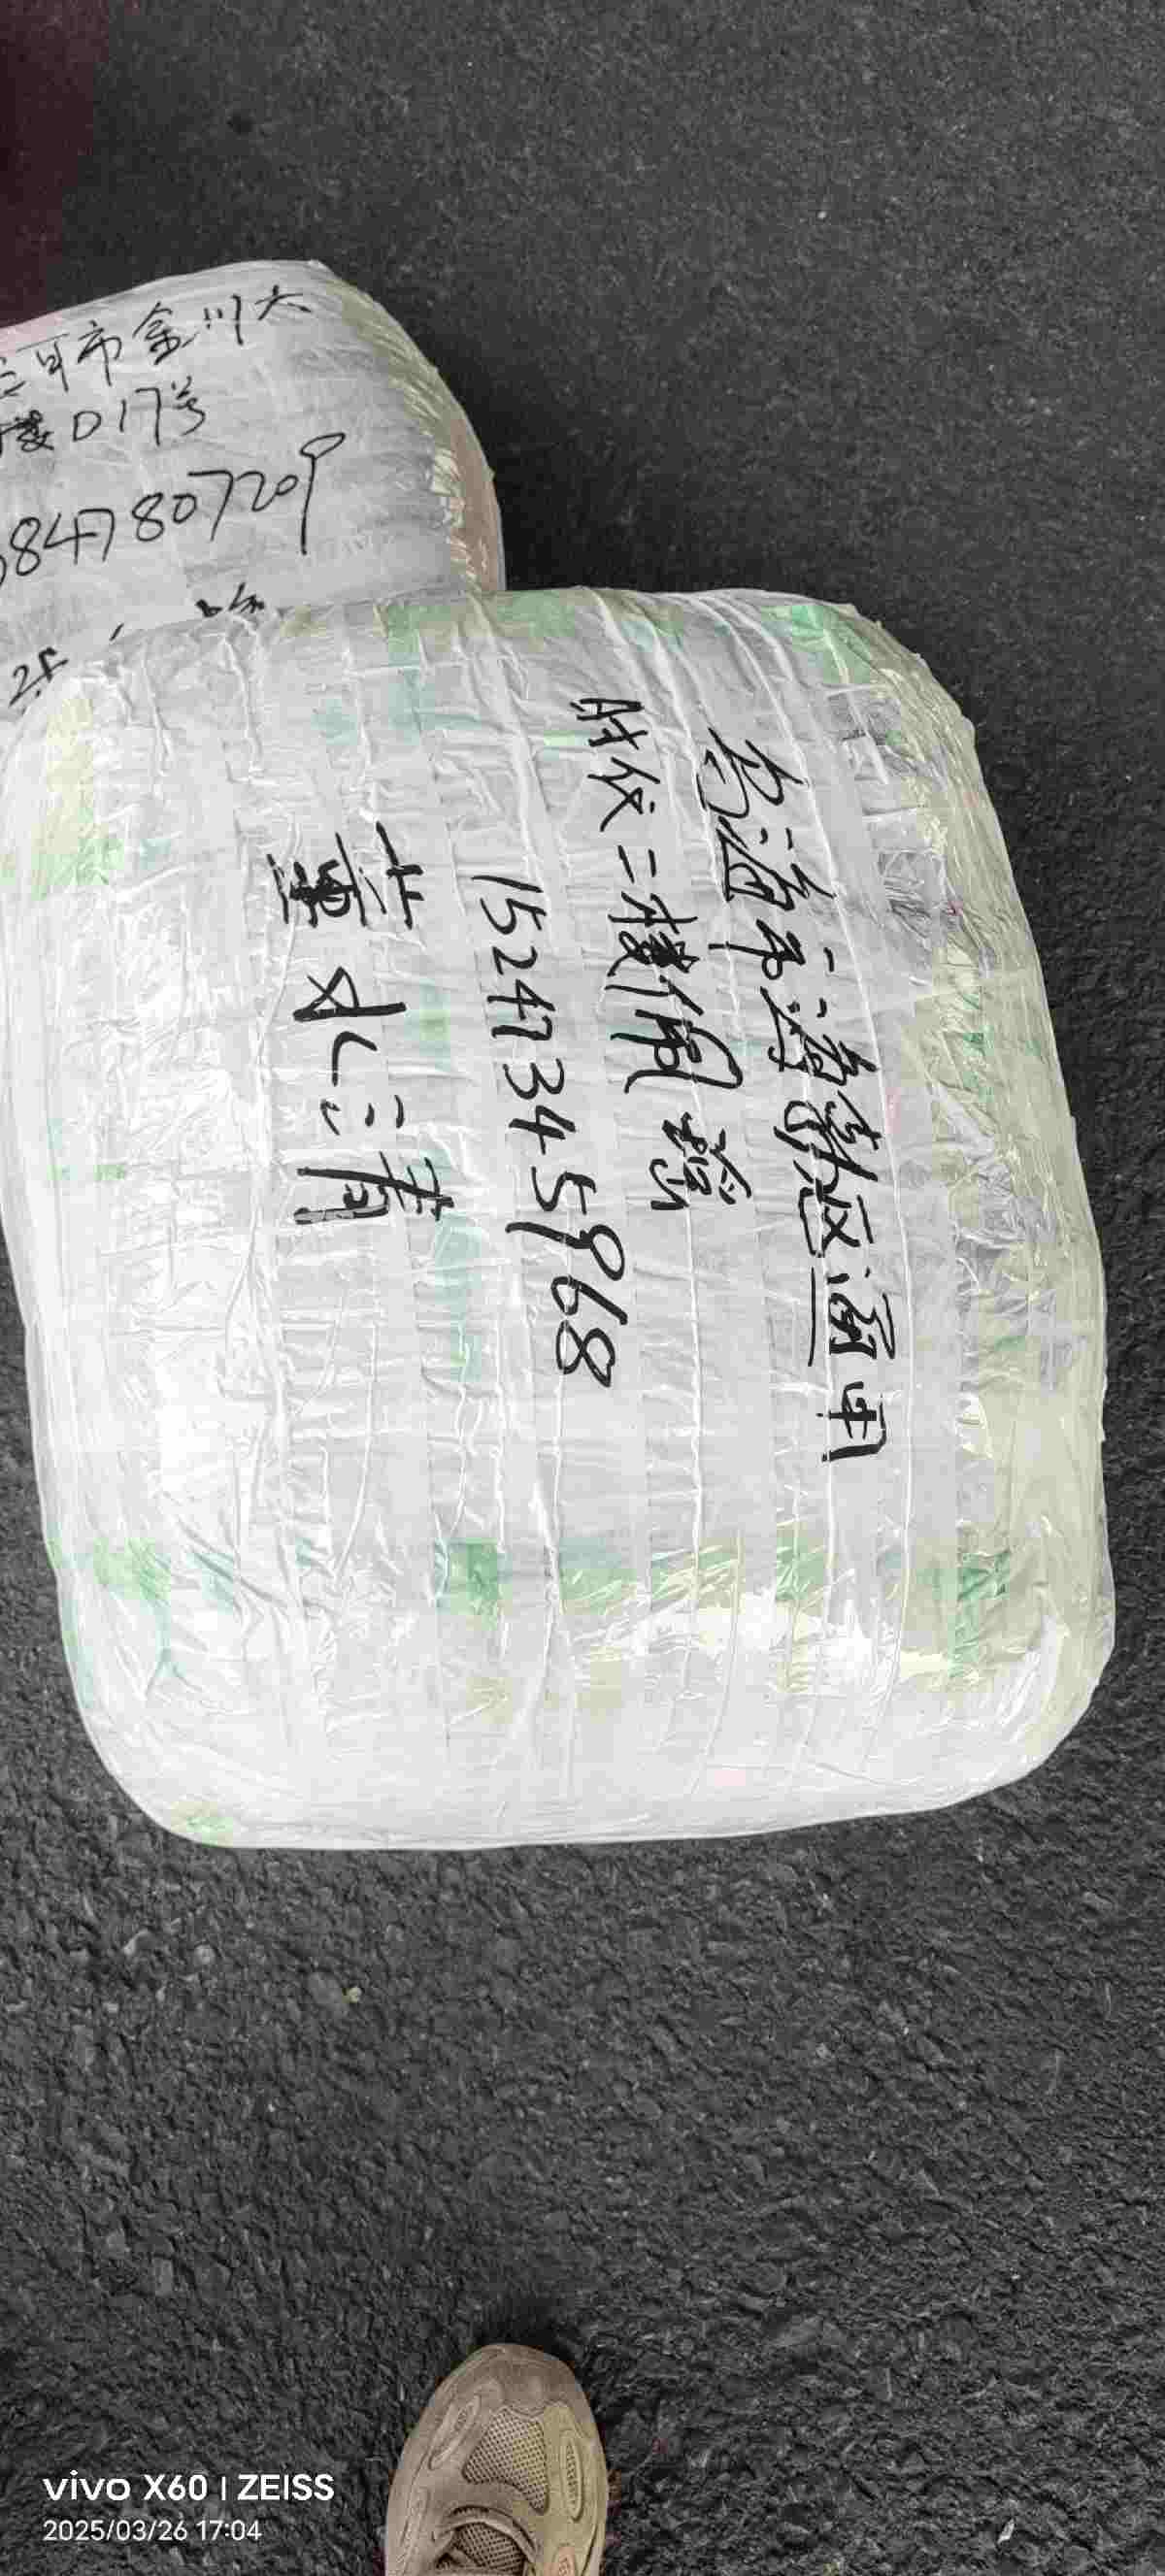 市金川大
楼D17号
847807209
乌海市海勃区通用
时代二楼佩
15247345968
董水清
vivo X60 | ZEISS
2025/03/26 17:04